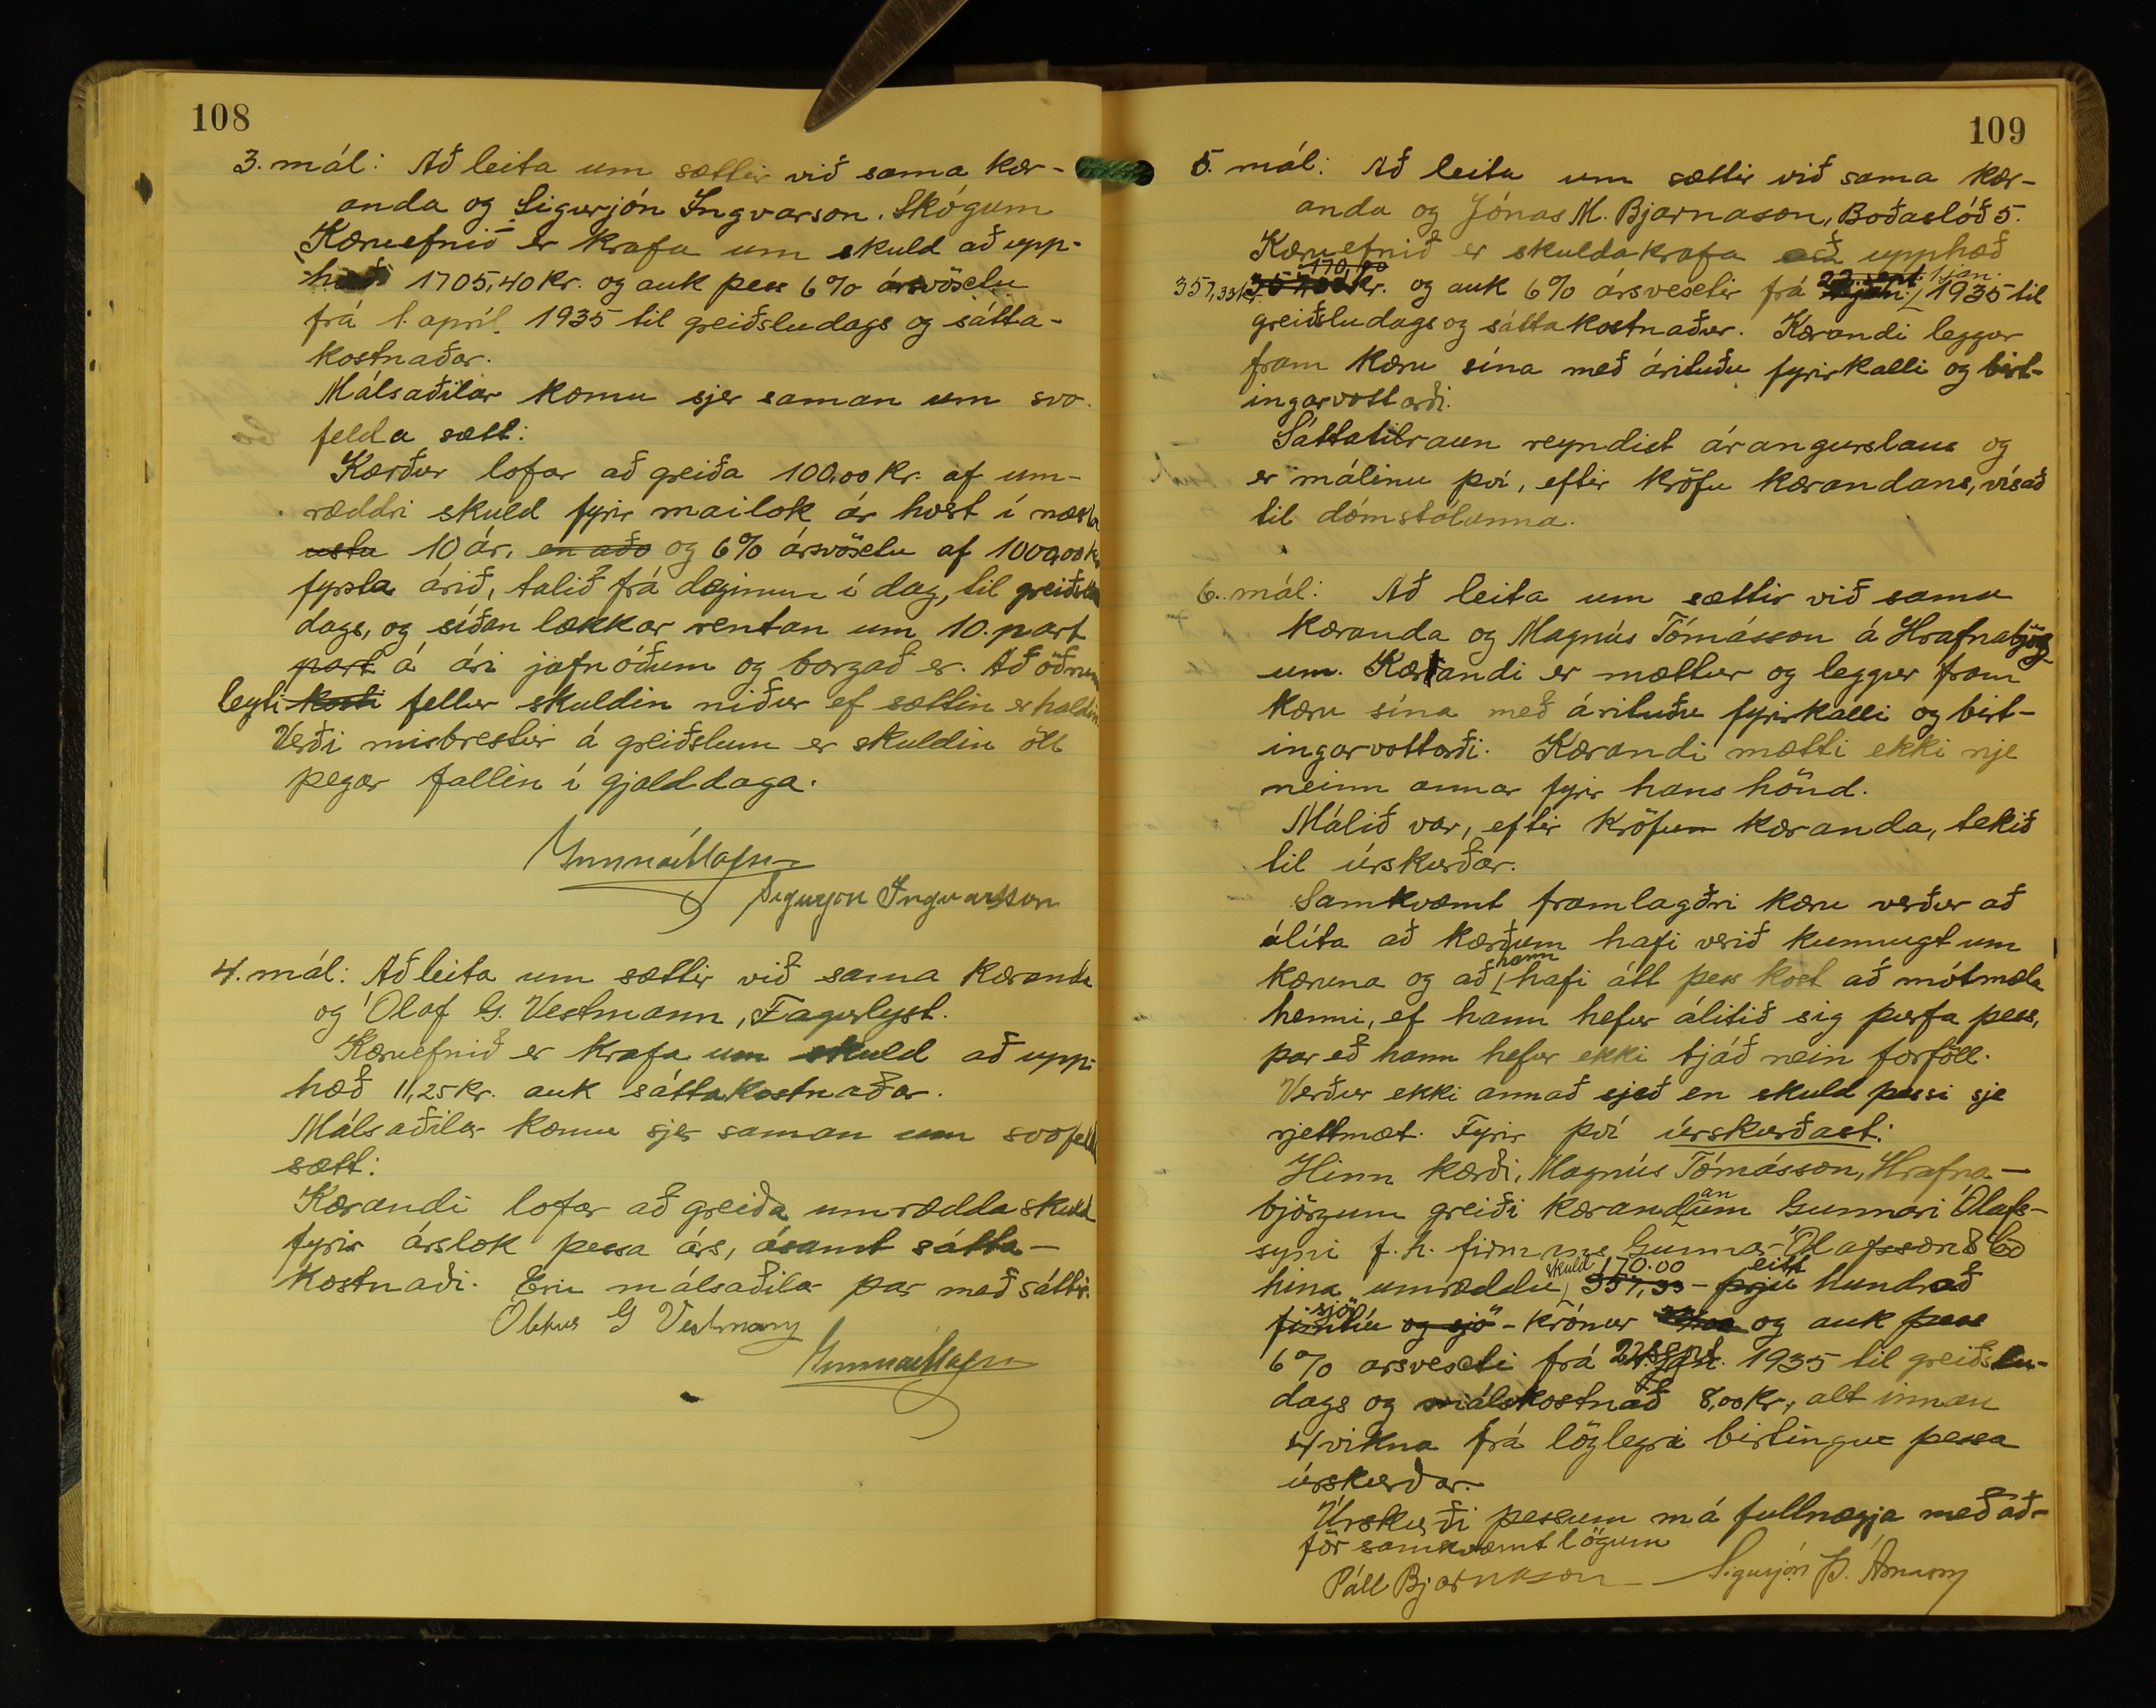 108
3. mál: Að leita um sættir við sama kær-
anda og Sigurjón Ingvarson. Skógum
Kæruefnið er krafa um skuld að upp-
hæð 1705,40 kr. og auk þess 6% ársvöxtu
frá 1. apríl 1935 til greiðsludags og sátta-
kostnaðar.
Málsaðilar komu sjer saman um svo
felda sætt:
Kærður lofar að greiða 100,00 kr. af um-
ræddri skuld fyrir mailok ár hvert í næstu
ustu 10 ár, en aðo og 6% ársvöxtu af 1000,00 kr
fyrsta árið, talið frá deginum í dag, til greiðslu
dags, og síðan lækkar rentan um 10. part
part á ári jafnóðum og borgað er. Að öðrum
leyti kosti fellur skuldin niður ef sættin er haldin
Verði misbrestur á greiðslum er skuldin öll
þegar fallin í gjalddaga.
Gunnar Ólafsson
Sigurjón Ingvarsson
4. mál: Að leita um sættir við sama kæranda
og Ólaf G. Vestmann, Fagurlyst.
Kæruefnið er krafa um skuld að upp-
hæð 11,25 kr. auk sáttakostnaðar.
Málsaðilar komu sjer saman um svofelda
sætt:
Kærandi lofar að greiða umrædda skuld
fyrir árslok þessa árs, ásamt sátta-
kostnaði. Eru málsaðilar þar með sáttir.
Ólafur G Vestmann
Gunnar Ólafsson
109
5. mál: Að leita um sættir við sama kær-
anda og Jónas M. Bjarnason, Boðaslóð 5.
Kæruefnið er skuldakrafa að upphæð
170,00
357,33 kr. 357,33 kr. og auk 6% ársvextir frá 22. sept. 1. jan. 1935 til
greiðsludags og sáttakostnaður. Kærandi leggur
fram kæru sína með árituðu fyrirkalli og birt-
ingarvottorði.
Sáttatilraun reyndist árangurslaus og
er málinu því, eftir kröfu kærandans, vísað
til dómstólanna.
6. mál: Að leita um sættir við sama
kæranda og Magnús Tómásson á Hrafnabjörg-
um. Kærandi er mættur og leggur fram
kæru sína með árituðu fyrirkalli og birt-
ingarvottorði. Kærandi mætti ekki nje
neinn annar fyrir hans hönd.
Málið var, eftir kröfum kæranda, tekið
til úrskurðar.
Samkvæmt framlagðri kæru verður að
álíta að kærðum hafi verið kunnugt um
kæruna og að hann hafi átt þess kost að mótmæla
henni, ef hann hefur álitið sig þurfa þess,
þar eð hann hefur ekki tjáð nein forföll.
Verður ekki annað sjeð en skuld þessi sje
rjettmæt. Fyrir því úrskurðast:
Hinn kærði, Magnús Tómásson, Hrafna-
björgum greiði kærandanum Gunnari Ólafs-
syni f. h. firmans Gunnar Ólafsson & Co
hina umræddu skuld 170.00 357,33 - eitt þrjú hundrað
sjö fimtíu og sjö - krónur og auk þess
6% ársvexti frá 22 sept. 1935 til greiðslu-
dags og málskostnað 8,00 kr., alt innan
4 vikna frá löglegri birtingu þessa
úrskurðar.
Úrskurði þessum má fullnægja með að-
för samkvæmt lögum
Páll Bjarnason Sigurjón Þ. Árnason